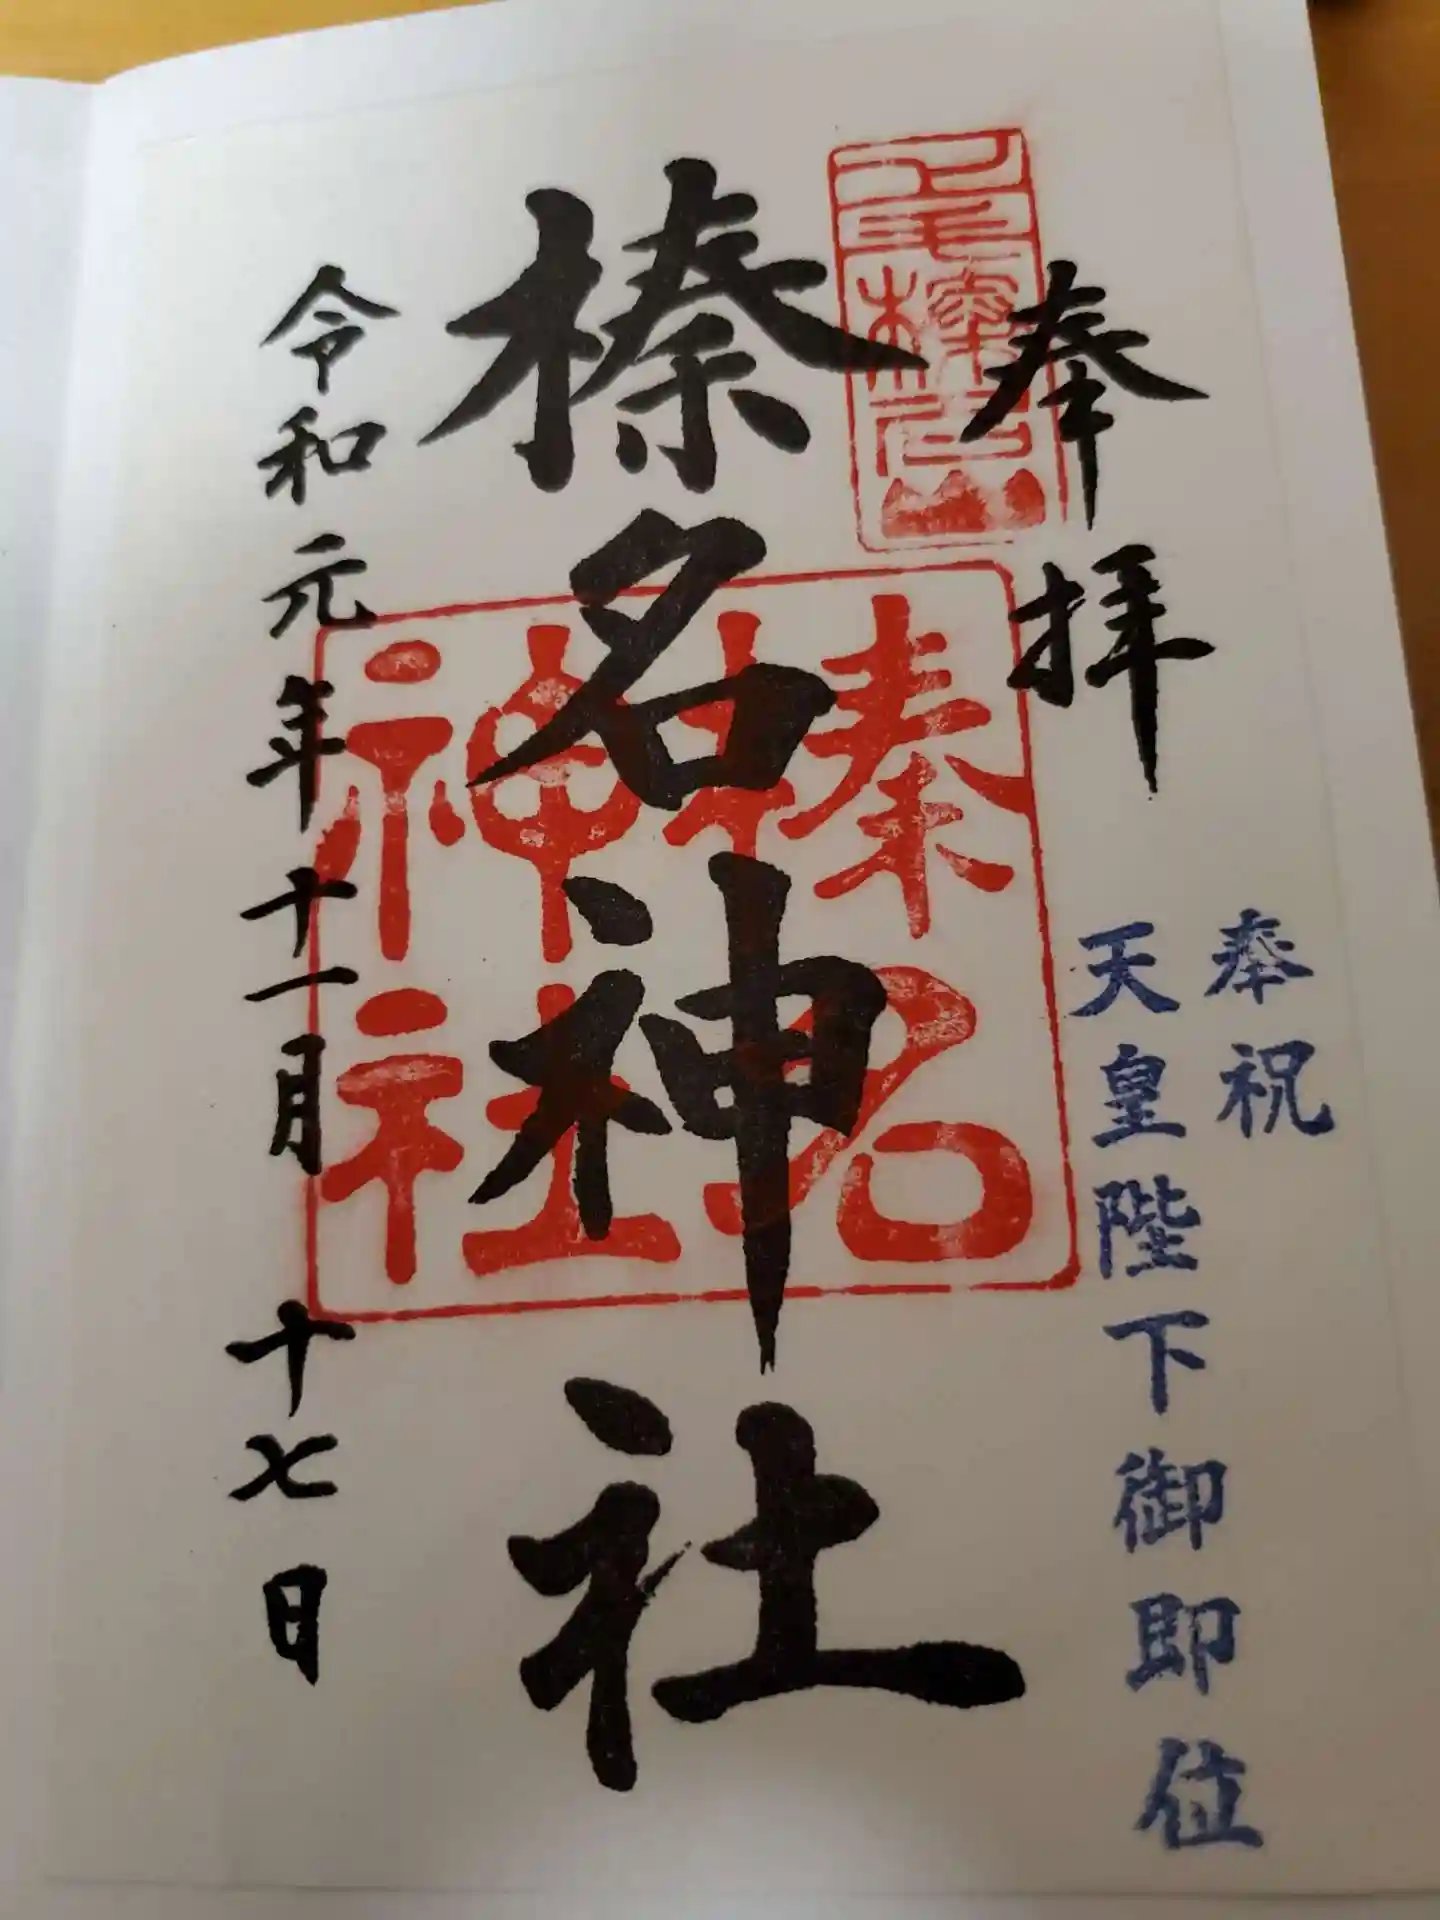 奉祝
天皇陛下御即位
奉拝
榛名神社
榛名
神社
令和元年十一月十七日